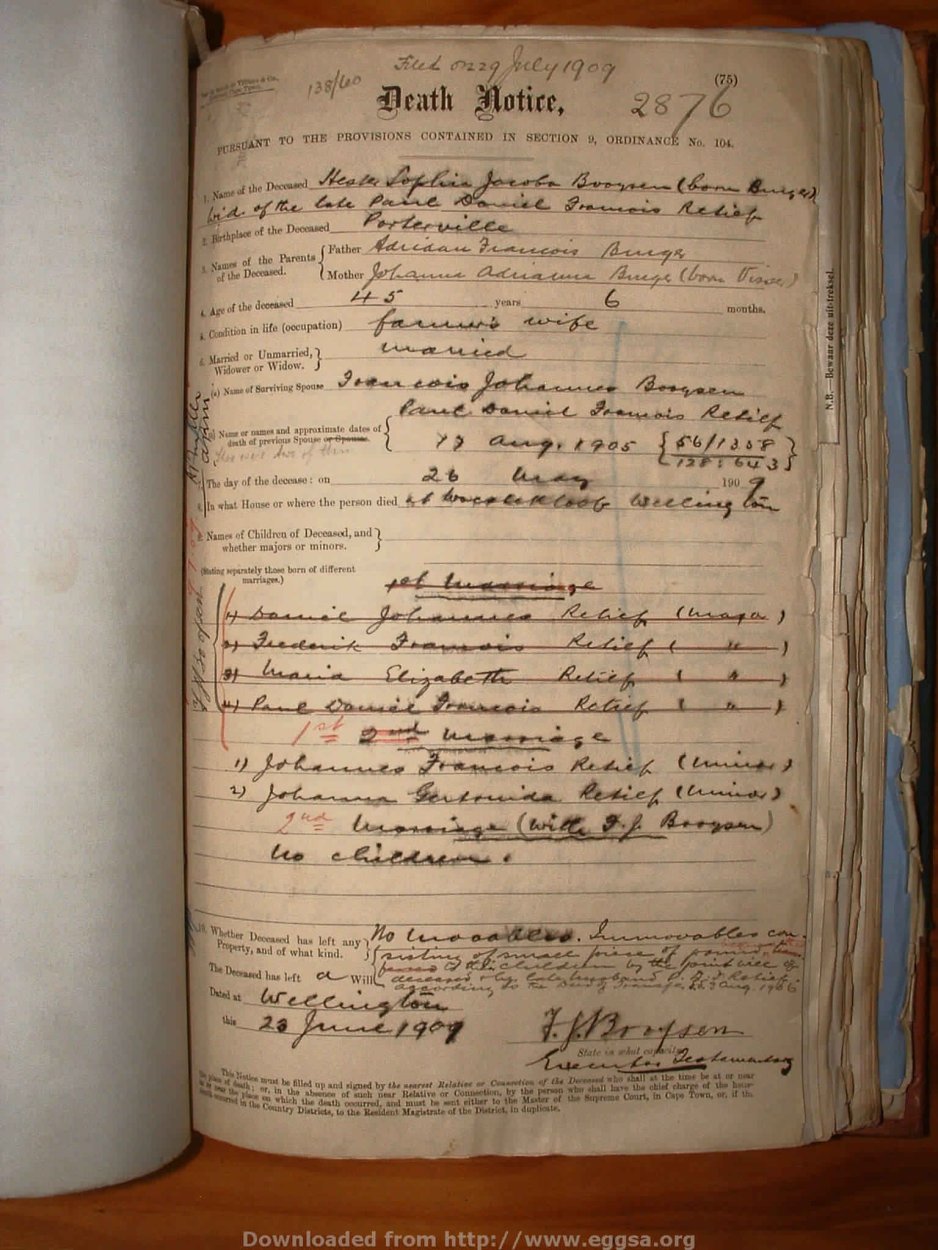 Filed on 29 July 1909
138/60
(75)
Death Notice,
2876
PURSUANT TO THE PROVISIONS CONTAINED IN SECTION 9, ORDINANCE No. 104.
1. Name of the Deceased Hester Sophia Jacoba Booysen (born Burger)
wid. of the late Paul Daniel Francois Retief
2. Birthplace of the Deceased Porterville
3. Names of the Parents of the Deceased. Father Adriaan Francois Burger
Mother Johanna Adrianna Burger (born Visser)
4. Age of the deceased 45 years 6 months.
5. Condition in life (occupation) farmer's wife
6. Married or Unmarried, Widower or Widow. married
(a) Name of Surviving Spouse Francois Johannes Booysen
Paul Daniel Francois Retief
(b) Name or names and approximate dates of death of previous Spouse or Spouses. 17 Aug. 1905
The day of the decease: on 26 May 1909
8. In what House or where the person died Wellington
9. Names of Children of Deceased, and whether majors or minors.
(Stating separately those born of different marriages.)
1st marriage
1) Daniel Johannes Retief (major)
2) Frederik Francois Retief ( " )
3) Maria Elizabeth Retief ( " )
4) Paul Daniel Francois Retief ( " )
1st 2nd marriage
1) Johannes Francois Retief (minor)
2) Johanna Gertruida Retief (minor)
2nd Marriage (with F. J. Booysen)
no children.
10. Whether Deceased has left any Property, and of what kind. No movables. Immovables con-
sisting of small piece of ground
to the children by the joint will of
The Deceased has left a Will deceased & her late husband P. D. F. Retief
Dated at Wellington
this 23 June 1909
F. J. Booysen
State in what capacity
Executor Testamentary
This Notice must be filled up and signed by the nearest Relative or Connection of the Deceased who shall at the time be at or near
the place of death; or, in the absence of such near Relative or Connection, by the person who shall have the chief charge of the house
in or the place on which the death occurred, and must be sent either to the Master of the Supreme Court, in Cape Town, or, if the
death occurred in the Country Districts, to the Resident Magistrate of the District, in duplicate.
N.B.—Bewaar deze uit-treksel.
Downloaded from http://www.eggsa.org